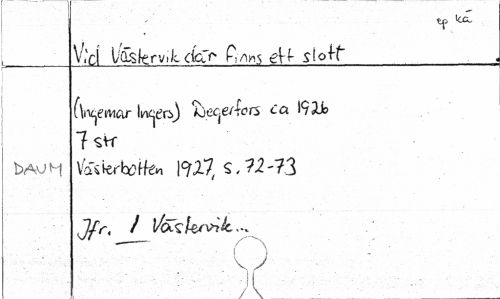 ep kä
Vid Västervik där finns ett slott
(Ingemar Ingers) Degerfors ca 1926
7 str
DAUM Västerbotten 1927, s. 72-73
Jfr. I Västervik...